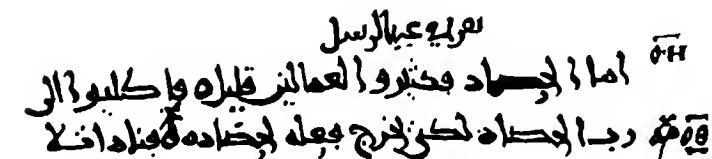 عيد الرسل
ΟΗ اما الحصاد فكثير والعمالين قليله فاطلبوا الى
ΟΘ رب الحصاد لكي يخرج فعله لحصاده